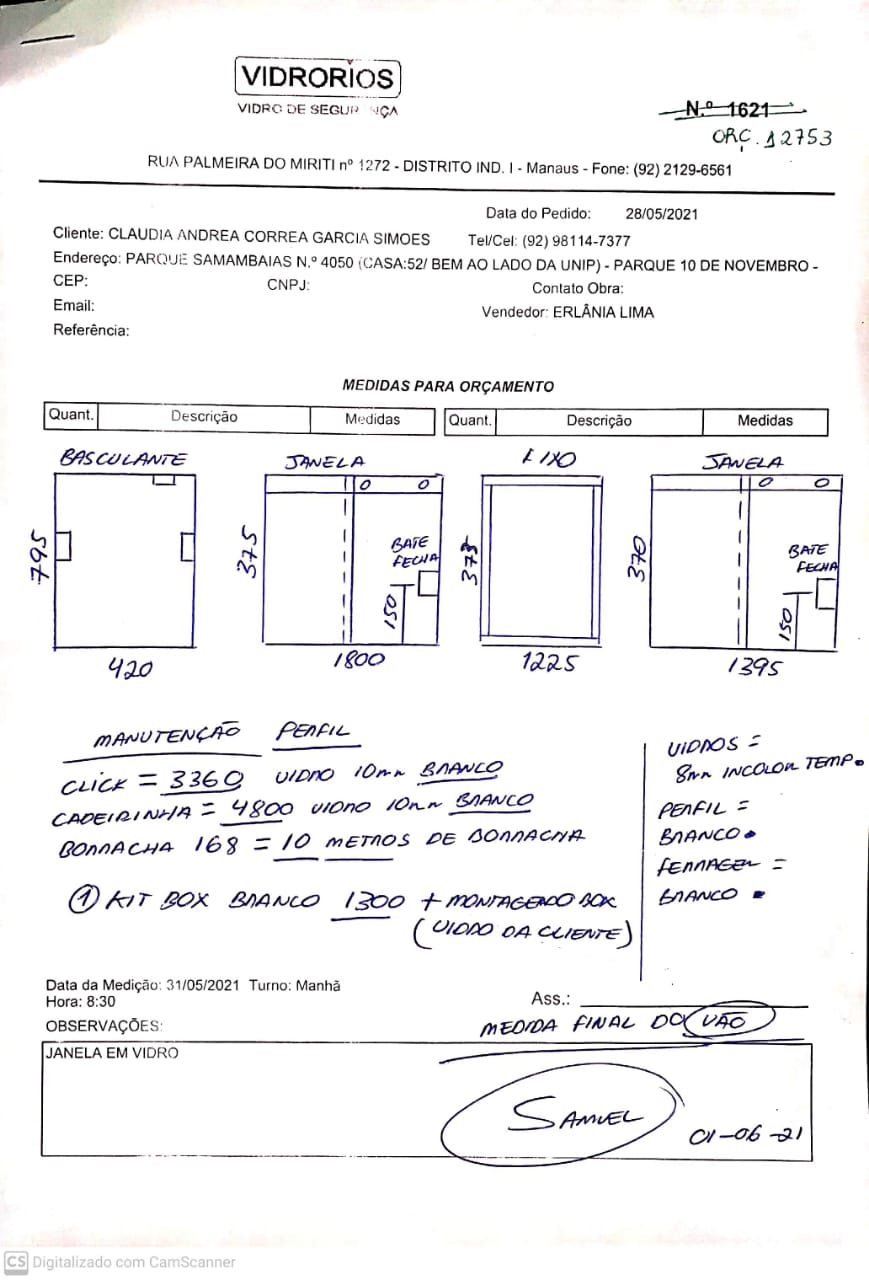 VIDRORIOS
VIDRO DE SEGURANÇA
N.º 1621
ORÇ. 12753
RUA PALMEIRA DO MIRITI nº 1272 - DISTRITO IND. I - Manaus - Fone: (92) 2129-6561
Data do Pedido: 28/05/2021
Cliente: CLAUDIA ANDREA CORREA GARCIA SIMOES Tel/Cel: (92) 98114-7377
Endereço: PARQUE SAMAMBAIAS N.º 4050 (CASA:52/ BEM AO LADO DA UNIP) - PARQUE 10 DE NOVEMBRO -
CEP: CNPJ: Contato Obra:
Email: Vendedor: ERLÂNIA LIMA
Referência:
MEDIDAS PARA ORÇAMENTO
Quant. Descrição Medidas Quant. Descrição Medidas
BASCULANTE JANELA FIXO JANELA
795 375 BATE FECHA 150 375 370 BATE FECHA 150
420 1800 1225 1395
MANUTENÇÃO PERFIL
CLICK = 3360 VIDRO 10mm BRANCO
CADEIRINHA = 4800 VIDRO 10mm BRANCO
BORRACHA 168 = 10 METROS DE BORRACHA
① KIT BOX BRANCO 1300 + MONTAGEM DO BOX
(VIDRO DA CLIENTE)
VIDROS =
8mm INCOLOR TEMP.
PERFIL =
BRANCO.
FERRAGEM =
BRANCO.
Data da Medição: 31/05/2021 Turno: Manhã
Hora: 8:30
Ass.:
OBSERVAÇÕES:
MEDIDA FINAL DO VÃO
JANELA EM VIDRO
SAMUEL
01-06-21
CS Digitalizado com CamScanner